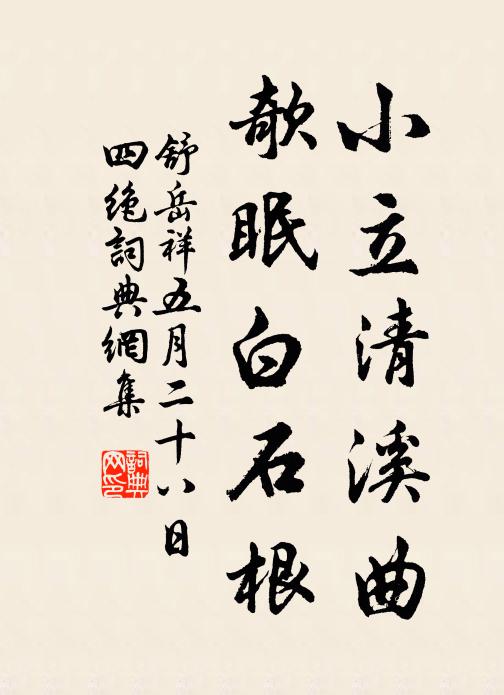 小立清溪曲
欹眠白石根
舒岳祥五月二十八日
四絶詞典網集
詞典網印